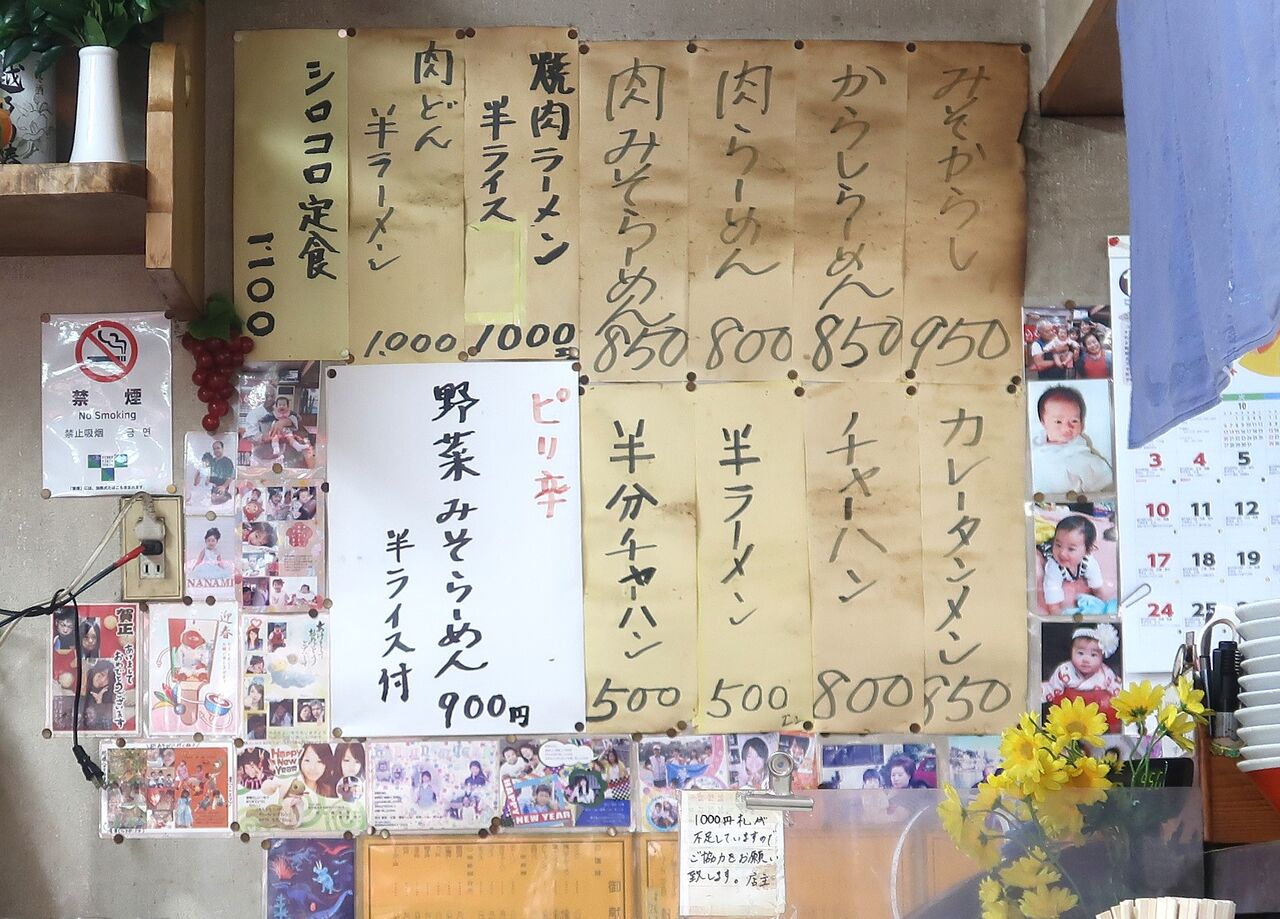 みそからし
950
からしらーめん
850
肉らーめん
800
肉みそらーめん
850
焼肉ラーメン
半ライス
1000
肉どん
半ラーメン
1.000
シロコロ定食
1100
カレータンメン
850
チャーハン
800
半ラーメン
500
半分チャハン
500
ピリ辛
野菜みそらーめん
半ライス付
900円
禁煙
No Smoking
禁止吸烟 금연
NANAMI
賀正
あけまして
おめでとうございます
迎春
Happy
New
YEAR
HAPPY
NEW YEAR
1000円札が
不足していますので
ご協力をお願い
致します。店主
御献
10
3 4 5
10 11 12
17 18 19
24 25